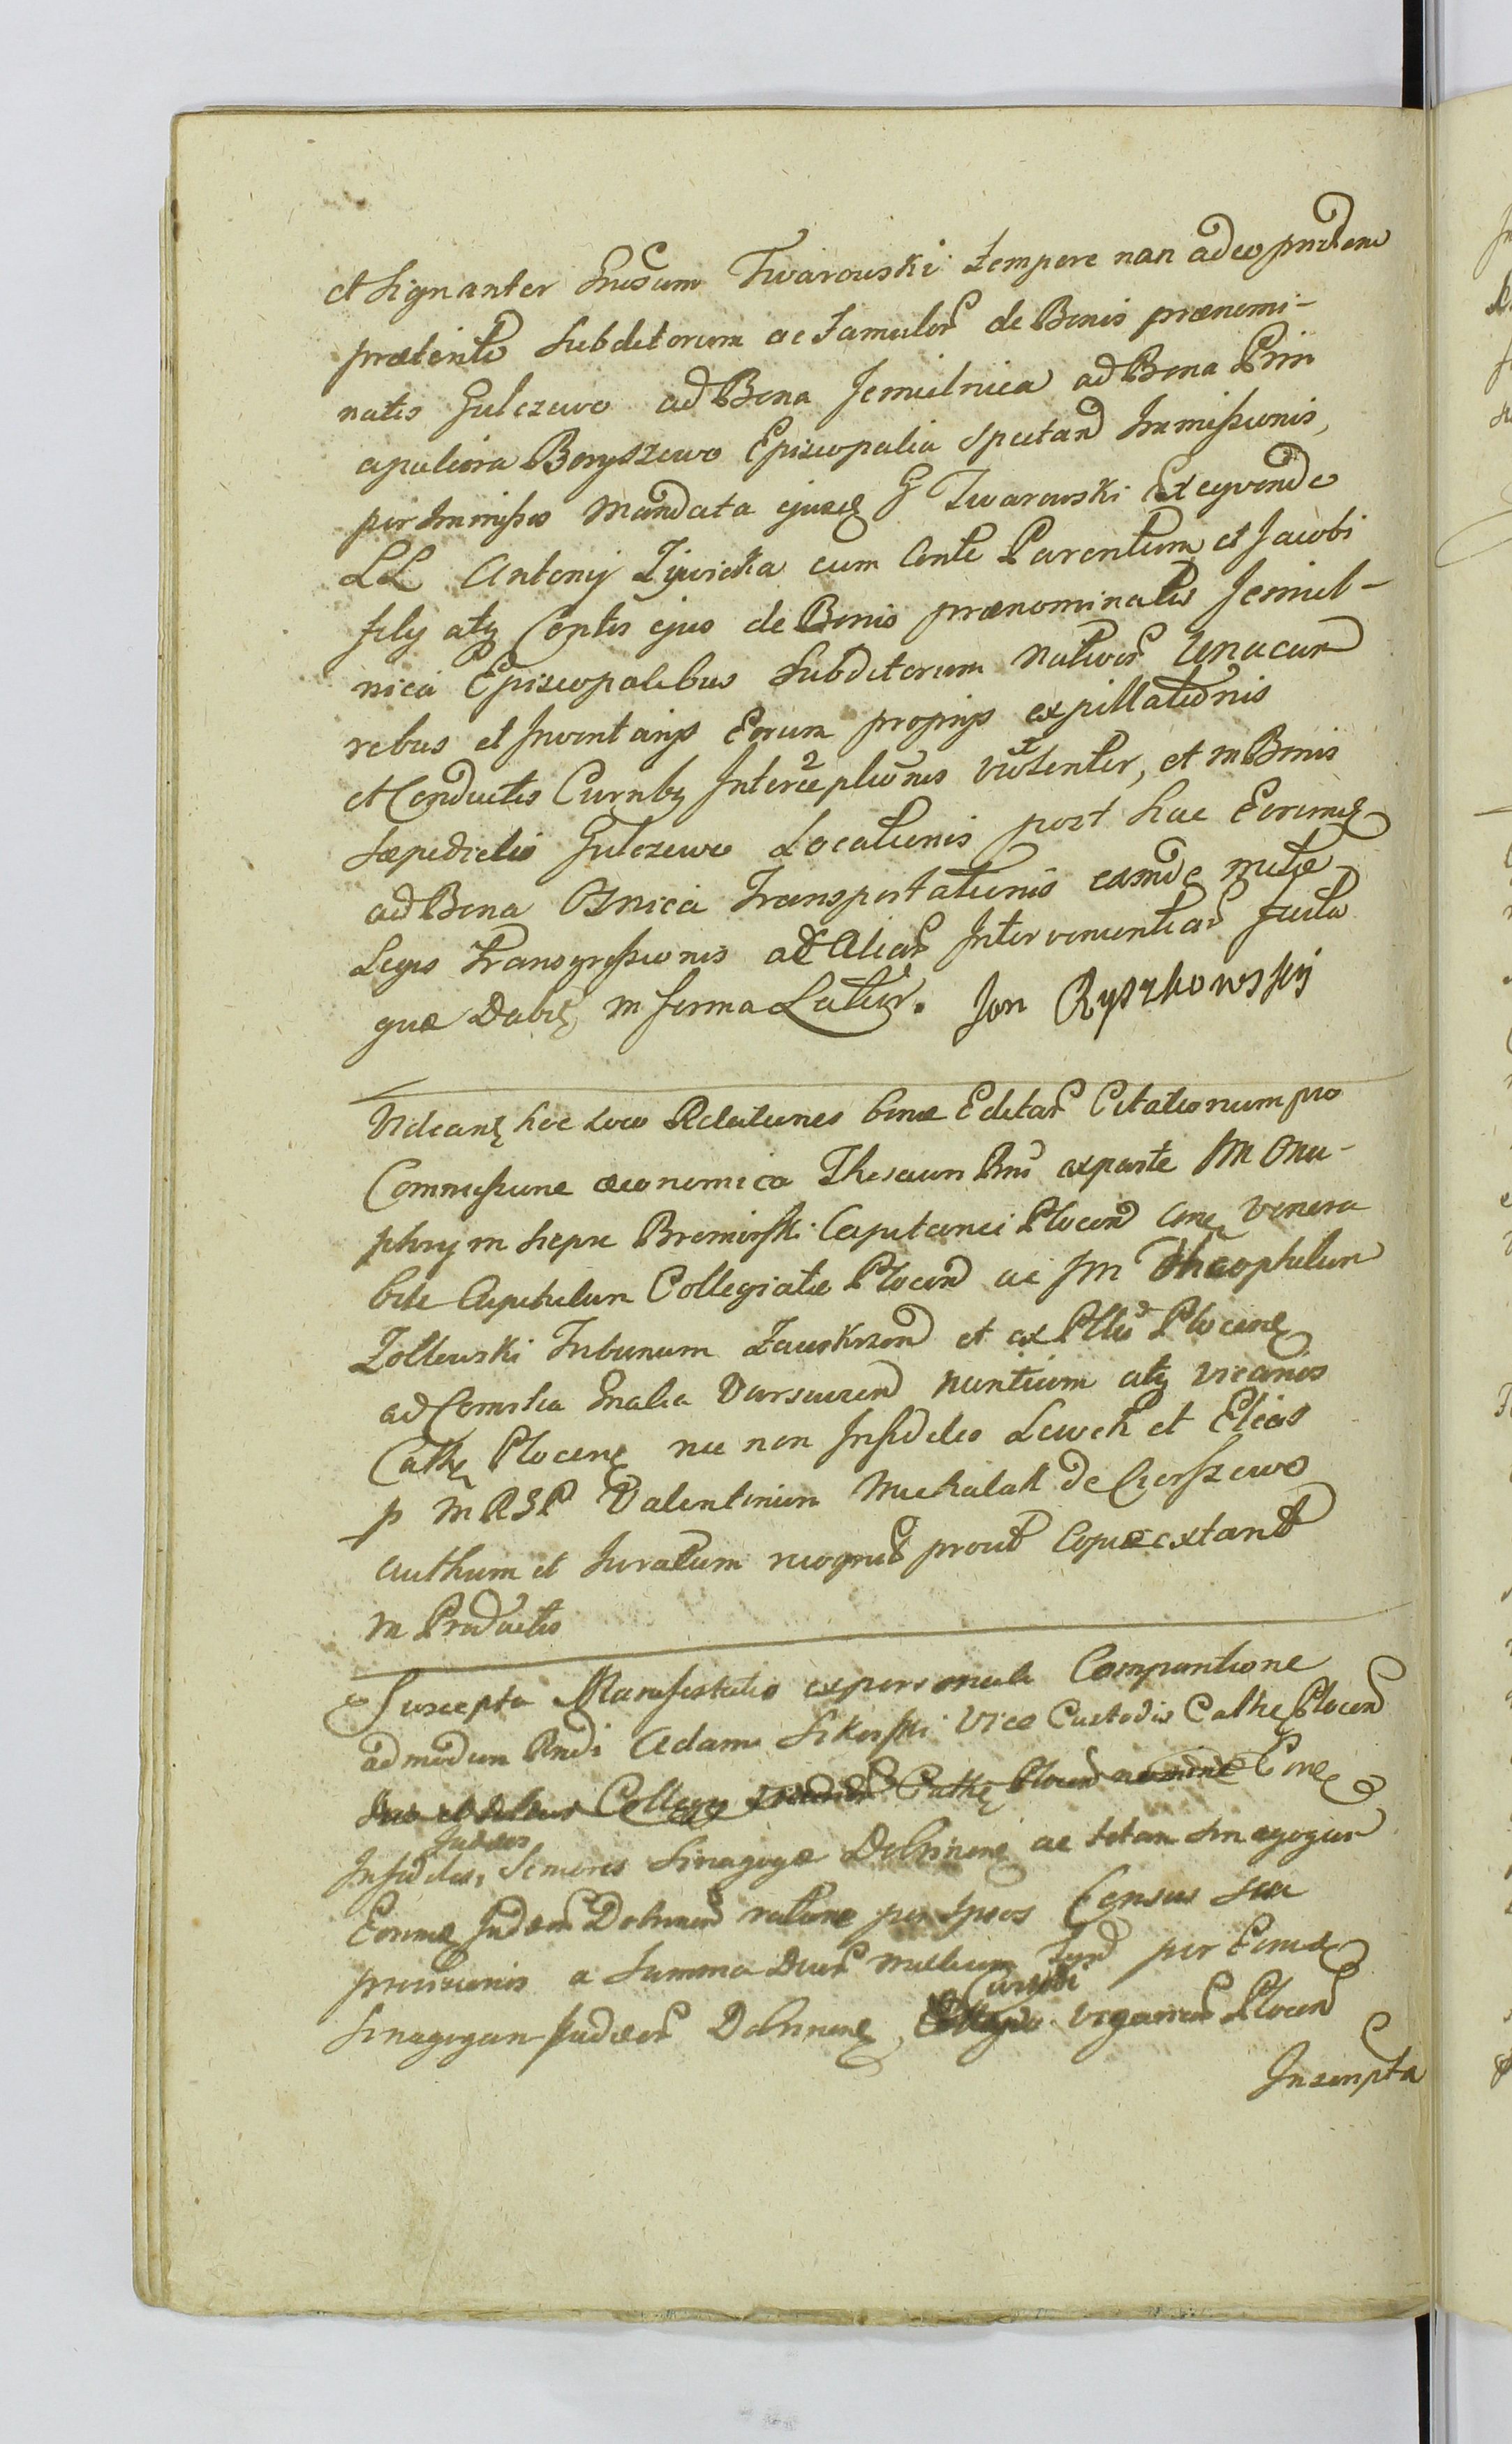 et Signanter Gnosum Twarowski tempore non adeo pridem
præterito Subditorum ac Famulor de Bonis prænomi-
natis Gulczewo ad Bona Jemielnica ad Bona Prin
cipaliora Boryszewo Episcopalia Spectan Immissionis,
per Immissos Mandata ejusd G Twarowski Exeqvendo
LL Antonij Zywicka cum Conte Parentum et Jacobi
filij atq Contis ejus de Bonis prænominatis Jemiel-
nica Episcopalibus Subditorum Nativor Unacum
rebus et Inventarijs Eorum proprijs expillationis
et Conductis Interceptionis violenter, et in Bonis
sæpedictis Gulczewo Locationis post hac Eorumd
ad Bona Osnica Transportationis eamd
Legis Transgressionis ad Aliar Intervenientiar Facta
quæ Dabit in forma Latior. Jan Ryszkowskij
Videant hoc loco Relationes binæ Editar Citationum pro
Commissione œconomica Thesauri Rni ex parte M Onu-
phrij in Siepre Bromirski Capitanei Plocen Cone Venera
bile Capitulum Collegiatæ Plocen ac M Theophilum
Zoltowski Tribunum Zawskrzen et ex Pltu Plocens
ad Comitia Gnalia Varsavien Nuntium atq Vicarios
Cathe Plocens nec non Infideles Lewek et Elias
p M RSP Valentinum Michalak de Ciesszewo
Authum et Juratum recognit prout Copiæ extant
in Productis
Suscepta Manifestatio ex personali Comparitione
admodum Rndi Adami Sikorski Vice Custodis Cathe Plocen
Suo et Collegij Cathe Plocen nomine Cone
Infideles Judæos Seniores Sinagogæ Dobrinens ac totam Sinagogam
Eorumd Judæor Dobrinen ratione per Ipsos Census seu
provisionis a Summa Duor Millium per Eamd
Sinagogam Judæor Dobrinens Vicarior Plocen
Inscripta